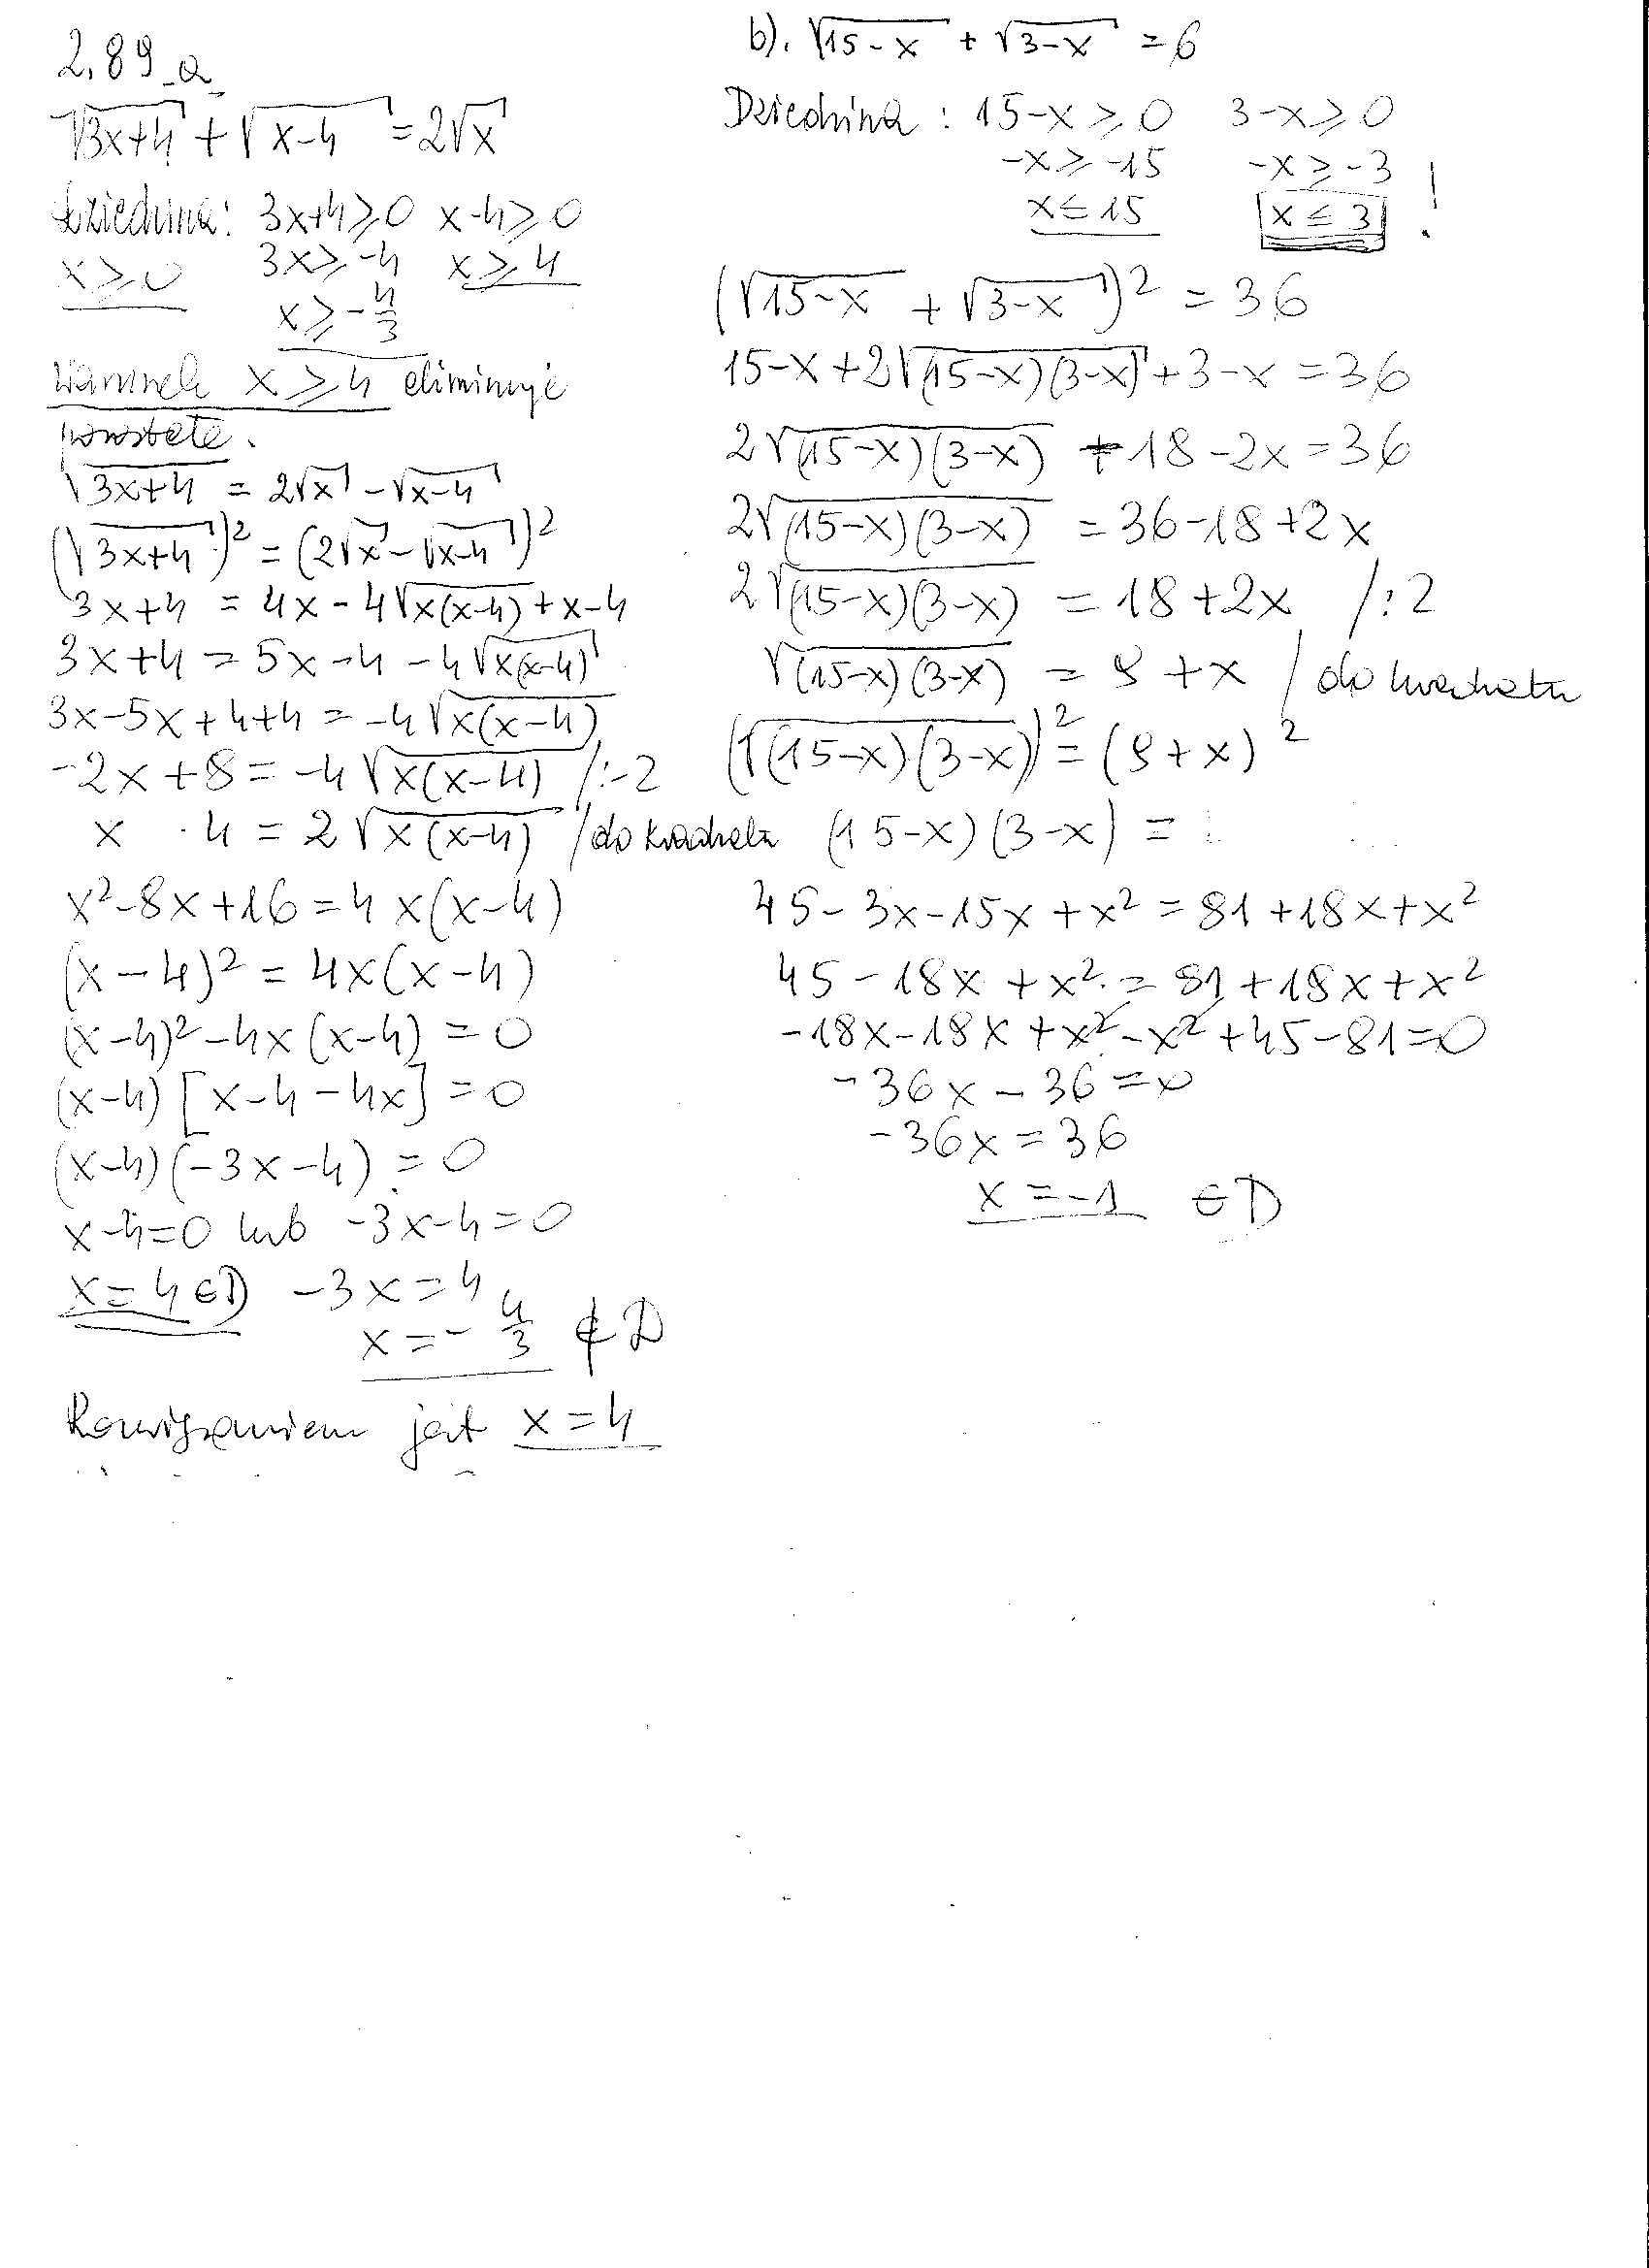 2.89 a
√(3x+4) + √(x-4) = 2√x
dziedzina: 3x+4 ≥ 0 x-4 ≥ 0
x ≥ 0 3x ≥ -4 x ≥ 4
x ≥ -4/3
Warunek x ≥ 4 eliminuje
pozostałe.
√(3x+4) = 2√x - √(x-4)
(√(3x+4))² = (2√x - √(x-4))²
3x+4 = 4x - 4√(x(x-4)) + x-4
3x+4 = 5x-4 - 4√(x(x-4))
3x-5x+4+4 = -4√(x(x-4))
-2x+8 = -4√(x(x-4)) /:-2
x · 4 = 2√(x(x-4)) /do kwadratu
x²-8x+16 = 4x(x-4)
(x-4)² = 4x(x-4)
(x-4)² - 4x(x-4) = 0
(x-4)[x-4-4x] = 0
(x-4)(-3x-4) = 0
x-4=0 lub -3x-4=0
x=4 ∈ D -3x=4
x = -4/3 ∉ D
Rozwiązaniem jest x=4
b). √(15-x) + √(3-x) = 6
Dziedzina: 15-x ≥ 0 3-x ≥ 0
-x ≥ -15 -x ≥ -3
x ≤ 15 x ≤ 3 !
(√(15-x) + √(3-x))² = 36
15-x+2√((15-x)(3-x))+3-x = 36
2√((15-x)(3-x)) + 18-2x = 36
2√((15-x)(3-x)) = 36-18+2x
2√((15-x)(3-x)) = 18+2x /:2
√((15-x)(3-x)) = 9+x / do kwadratu
(√((15-x)(3-x)))² = (9+x)²
(15-x)(3-x) =
45-3x-15x+x² = 81+18x+x²
45-18x+x² = 81+18x+x²
-18x-18x+x²-x²+45-81=0
-36x-36=0
-36x=36
x=-1 ∈ D